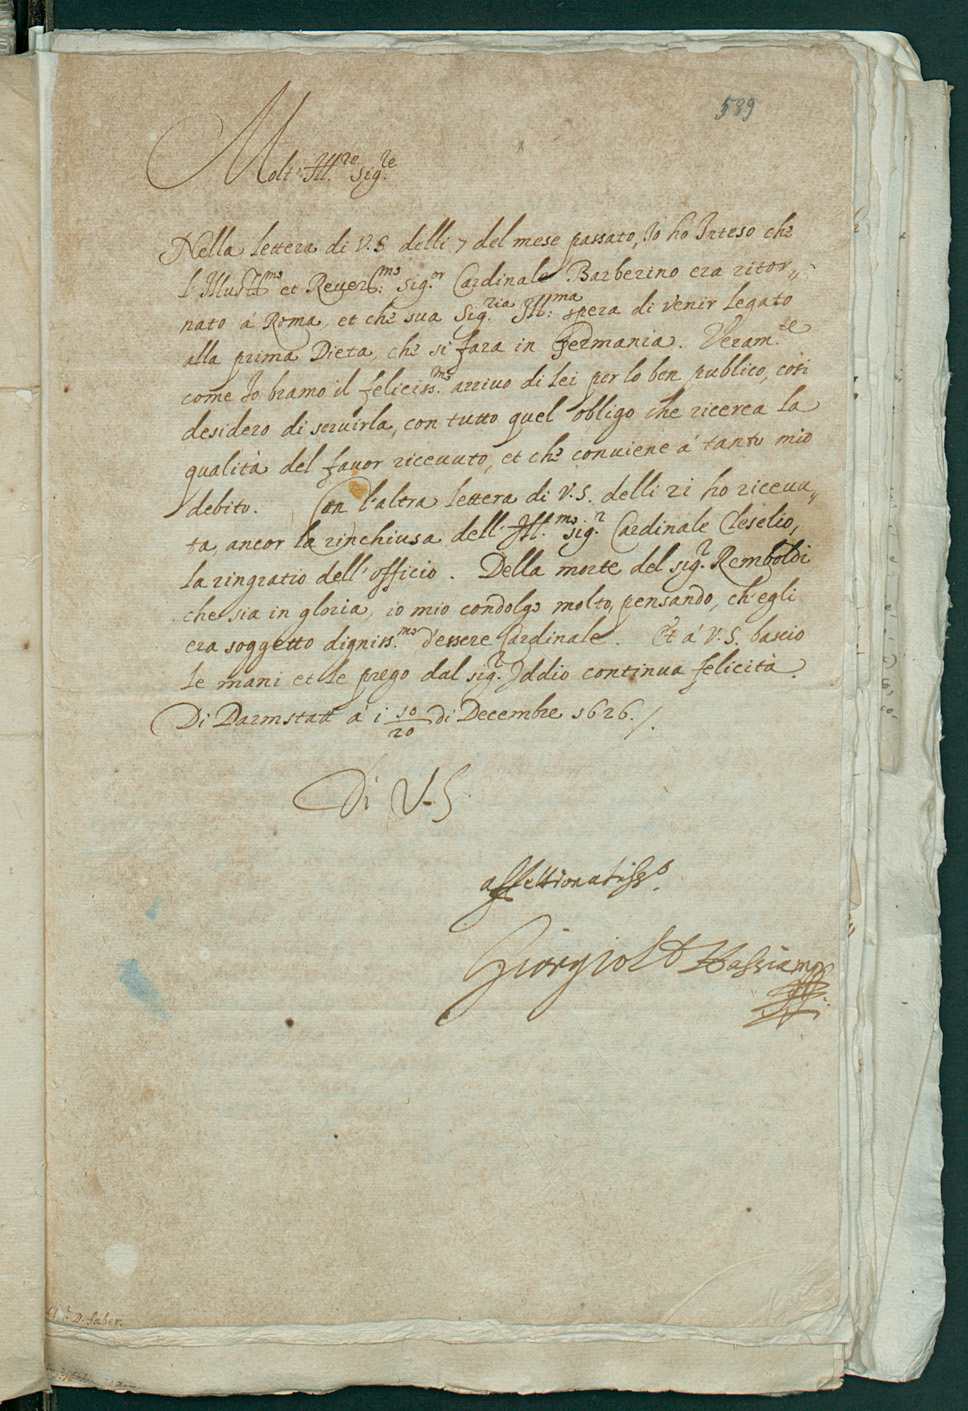 589
Molt' Ill.re Sig.re
Nella lettera di V.S. delli 7 del mese passato, Io ho Inteso che
l'Illust.mo et Reuer.mo Sig.or Cardinale Barberino era ritor„
nato á Roma, et che sua Sig.ria Ill.ma spera di venir legato
alla prima Dieta, che si fara in Germania. Veram.te
come Io bramo il feliciss.mo arriuo di lei per lo ben publico, cosi
desidero di seruirla, con tutto quel obligo che ricerca la
qualità del fauor riceuuto, et che conuiene á tanto mio
debito. Con l'altra lettera di V.S. delli 21 ho riceuu„
ta ancor la rinchiusa dell' Ill.mo Sig.r Cardinale Cleselio,
la ringratio dell' officio. Della morte del sig.r Remboldi
che sia in gloria, io mio condolgo molto, pensando, ch'egli
era soggetto digniss.mo d'essere Cardinale. Et á V.S. bascio
le mani et le prego dal sig.r Iddio continua felicità.
Di Darmstatt á i 10/20 di Decembre 1626./.
Di V.S.
affettionatiss.o
Giorgio L d Hassia mp
D. faber.